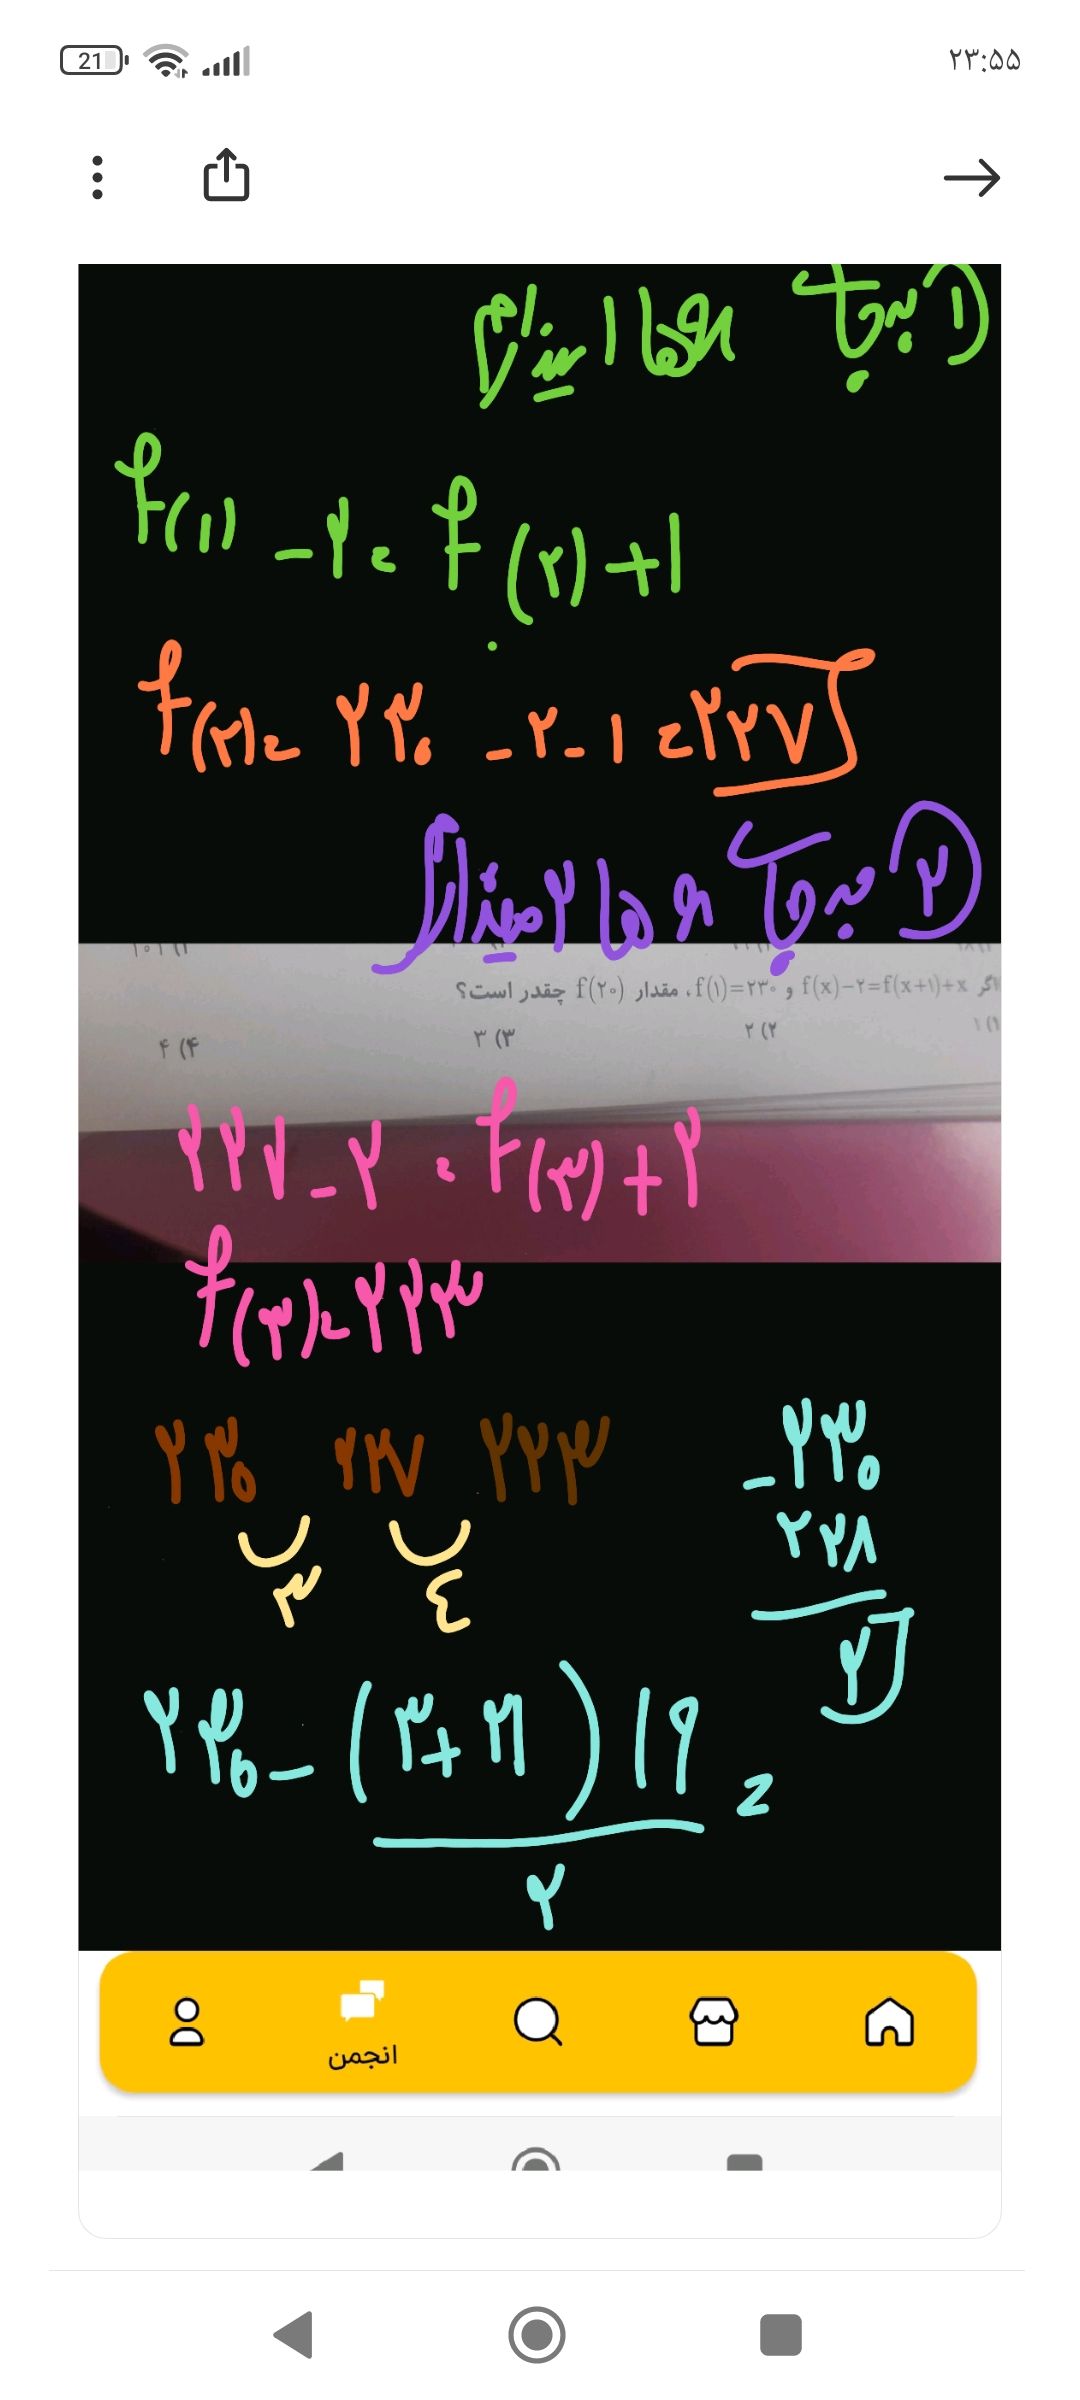 21 ۲۳:۵۵
۱) بجای xها ۱ میذارم
f(۱) - ۲ = f(۲) + ۱
f(۲) = ۲۳۰ - ۲ - ۱ = ۲۲۷
۲) بجای xها ۲ میذارم
اگر f(x)-۲=f(x+۱)+x و f(۱)=۲۳۰، مقدار f(۲۰) چقدر است؟
۱) ۱ ۲) ۲ ۳) ۳ ۴) ۴
۲۲۷ - ۲ = f(۳) + ۲
f(۳) = ۲۲۳
۲۳۰ ۲۲۷ ۲۲۳
۳ ٤
- ۲۳۰
۲۲۸
۲
۲۳۰ - (۳ + ۲۱) ۱۹ =
۲
انجمن